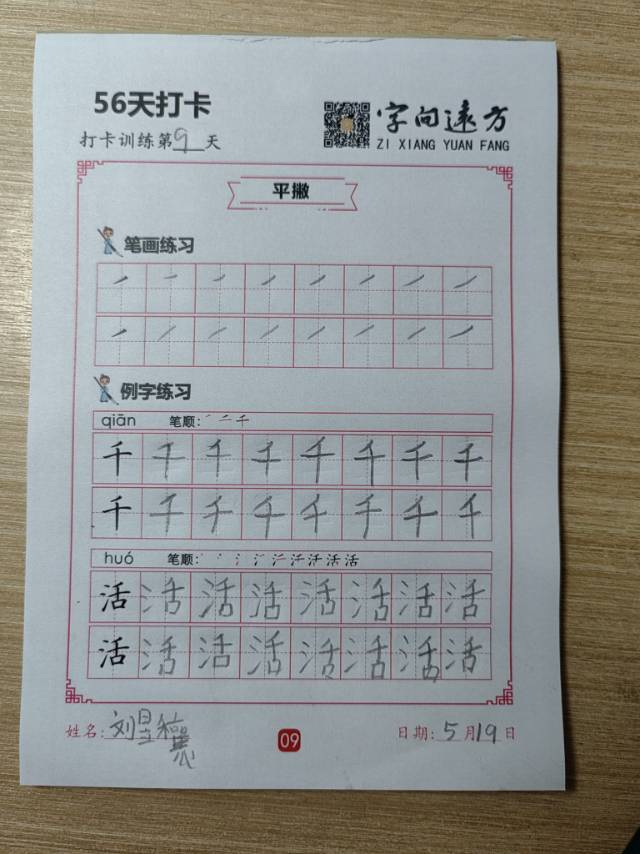 56天打卡
打卡训练第9天
字向远方
ZI XIANG YUAN FANG
平撇
笔画练习
例字练习
qiān 笔顺:
千 千 千 千 千 千 千 千
千 千 千 千 千 千 千 千
huó 笔顺:
活 活 活 活 活 活 活 活
活 活 活 活 活 活 活 活
姓名:刘昱
09
日期:5月19日